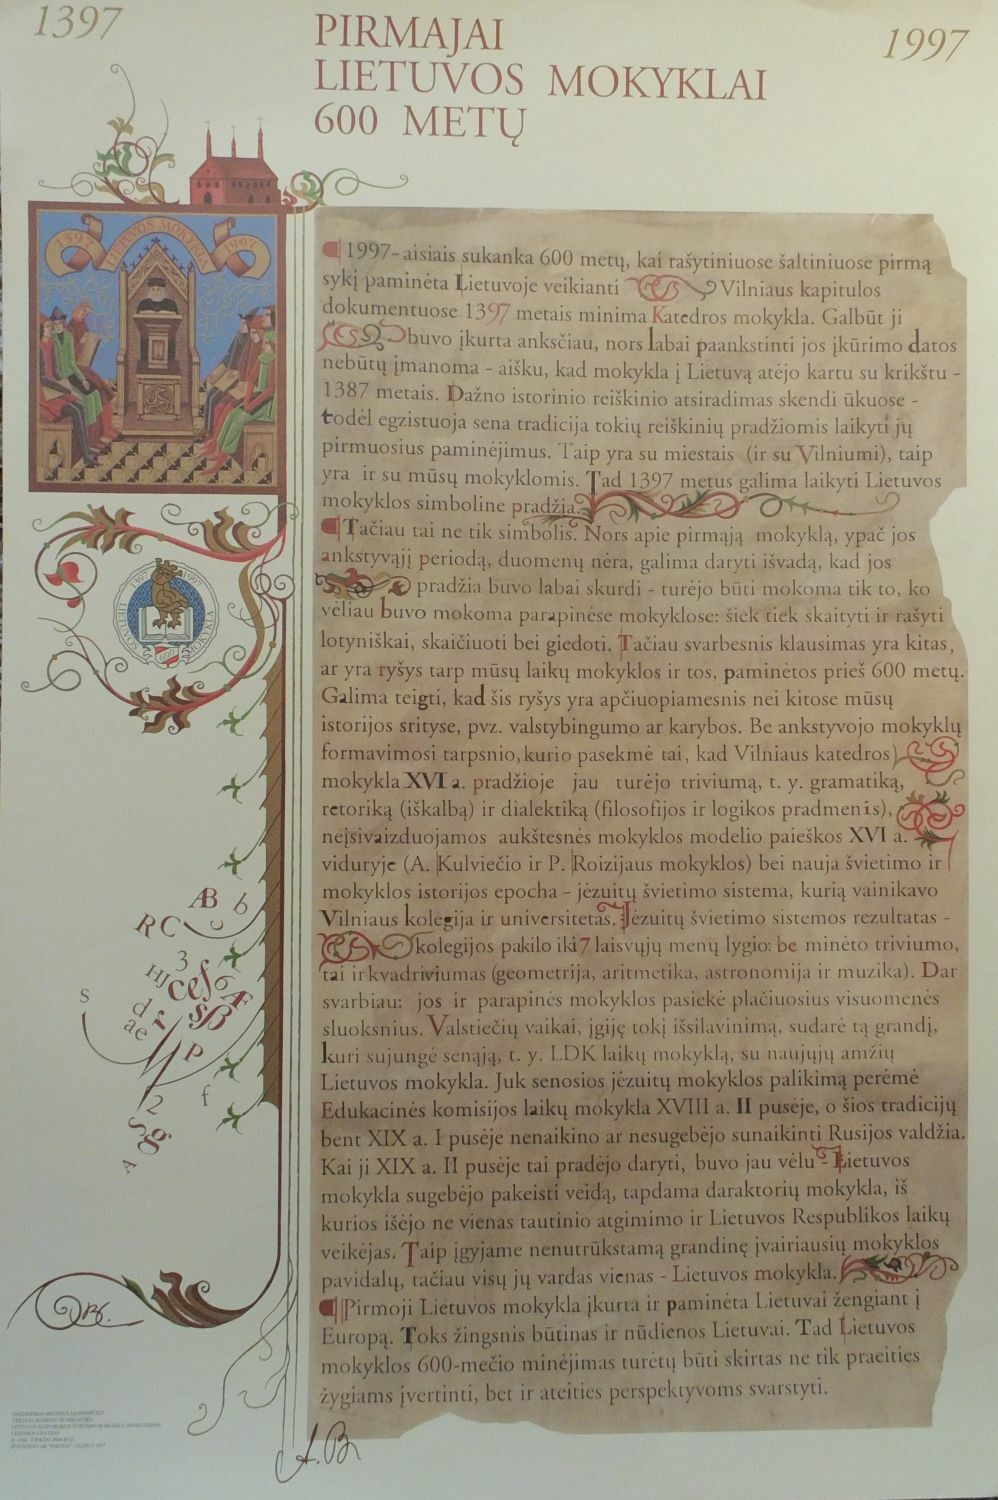 1397
1997
PIRMAJAI
LIETUVOS MOKYKLAI
600 METŲ
1397 LIETUVOS MOKYKLA 1997
1997-aisiais sukanka 600 metų, kai rašytiniuose šaltiniuose pirmą
sykį paminėta Lietuvoje veikianti Vilniaus kapitulos
dokumentuose 1397 metais minima Katedros mokykla. Galbūt ji
buvo įkurta anksčiau, nors labai paankstinti jos įkūrimo datos
nebūtų įmanoma - aišku, kad mokykla į Lietuvą atėjo kartu su krikštu -
1387 metais. Dažno istorinio reiškinio atsiradimas skendi ūkuose -
todėl egzistuoja sena tradicija tokių reiškinių pradžiomis laikyti jų
pirmuosius paminėjimus. Taip yra su miestais (ir su Vilniumi), taip
yra ir su mūsų mokyklomis. Tad 1397 metus galima laikyti Lietuvos
mokyklos simboline pradžia.
Tačiau tai ne tik simbolis. Nors apie pirmąją mokyklą, ypač jos
ankstyvąjį periodą, duomenų nėra, galima daryti išvadą, kad jos
pradžia buvo labai skurdi - turėjo būti mokoma tik to, ko
vėliau buvo mokoma parapinėse mokyklose: šiek tiek skaityti ir rašyti
lotyniškai, skaičiuoti bei giedoti. Tačiau svarbesnis klausimas yra kitas,
ar yra ryšys tarp mūsų laikų mokyklos ir tos, paminėtos prieš 600 metų.
Galima teigti, kad šis ryšys yra apčiuopiamesnis nei kitose mūsų
istorijos srityse, pvz. valstybingumo ar karybos. Be ankstyvojo mokyklų
formavimosi tarpsnio, kurio pasekmė tai, kad Vilniaus katedros
mokykla XVI a. pradžioje jau turėjo triviumą, t. y. gramatiką,
retoriką (iškalbą) ir dialektiką (filosofijos ir logikos pradmenis),
neįsivaizduojamos aukštesnės mokyklos modelio paieškos XVI a.
viduryje (A. Kulviečio ir P. Roizijaus mokyklos) bei nauja švietimo ir
mokyklos istorijos epocha - jėzuitų švietimo sistema, kurią vainikavo
Vilniaus kolegija ir universitetas. Jėzuitų švietimo sistemos rezultatas -
kolegijos pakilo iki 7 laisvųjų menų lygio: be minėto triviumo,
tai ir kvadriviumas (geometrija, aritmetika, astronomija ir muzika). Dar
svarbiau: jos ir parapinės mokyklos pasiekė plačiuosius visuomenės
sluoksnius. Valstiečių vaikai, įgiję tokį išsilavinimą, sudarė tą grandį,
kuri sujungė senąją, t. y. LDK laikų mokyklą, su naujųjų amžių
Lietuvos mokykla. Juk senosios jėzuitų mokyklos palikimą perėmė
Edukacinės komisijos laikų mokykla XVIII a. II pusėje, o šios tradicijų
bent XIX a. I pusėje nenaikino ar nesugebėjo sunaikinti Rusijos valdžia.
Kai ji XIX a. II pusėje tai pradėjo daryti, buvo jau vėlu - Lietuvos
mokykla sugebėjo pakeisti veidą, tapdama daraktorių mokykla, iš
kurios išėjo ne vienas tautinio atgimimo ir Lietuvos Respublikos laikų
veikėjas. Taip įgyjame nenutrūkstamą grandinę įvairiausių mokyklos
pavidalų, tačiau visų jų vardas vienas - Lietuvos mokykla.
Pirmoji Lietuvos mokykla įkurta ir paminėta Lietuvai žengiant į
Europą. Toks žingsnis būtinas ir nūdienos Lietuvai. Tad Lietuvos
mokyklos 600-mečio minėjimas turėtų būti skirtas ne tik praeities
žygiams įvertinti, bet ir ateities perspektyvoms svarstyti.
1397 1997
LIETUVOS MOKYKLA
600
AB b
R C c
3
HJ cef 6 Æ
s d r sß
ae
p
2 f
S g
A
A. B